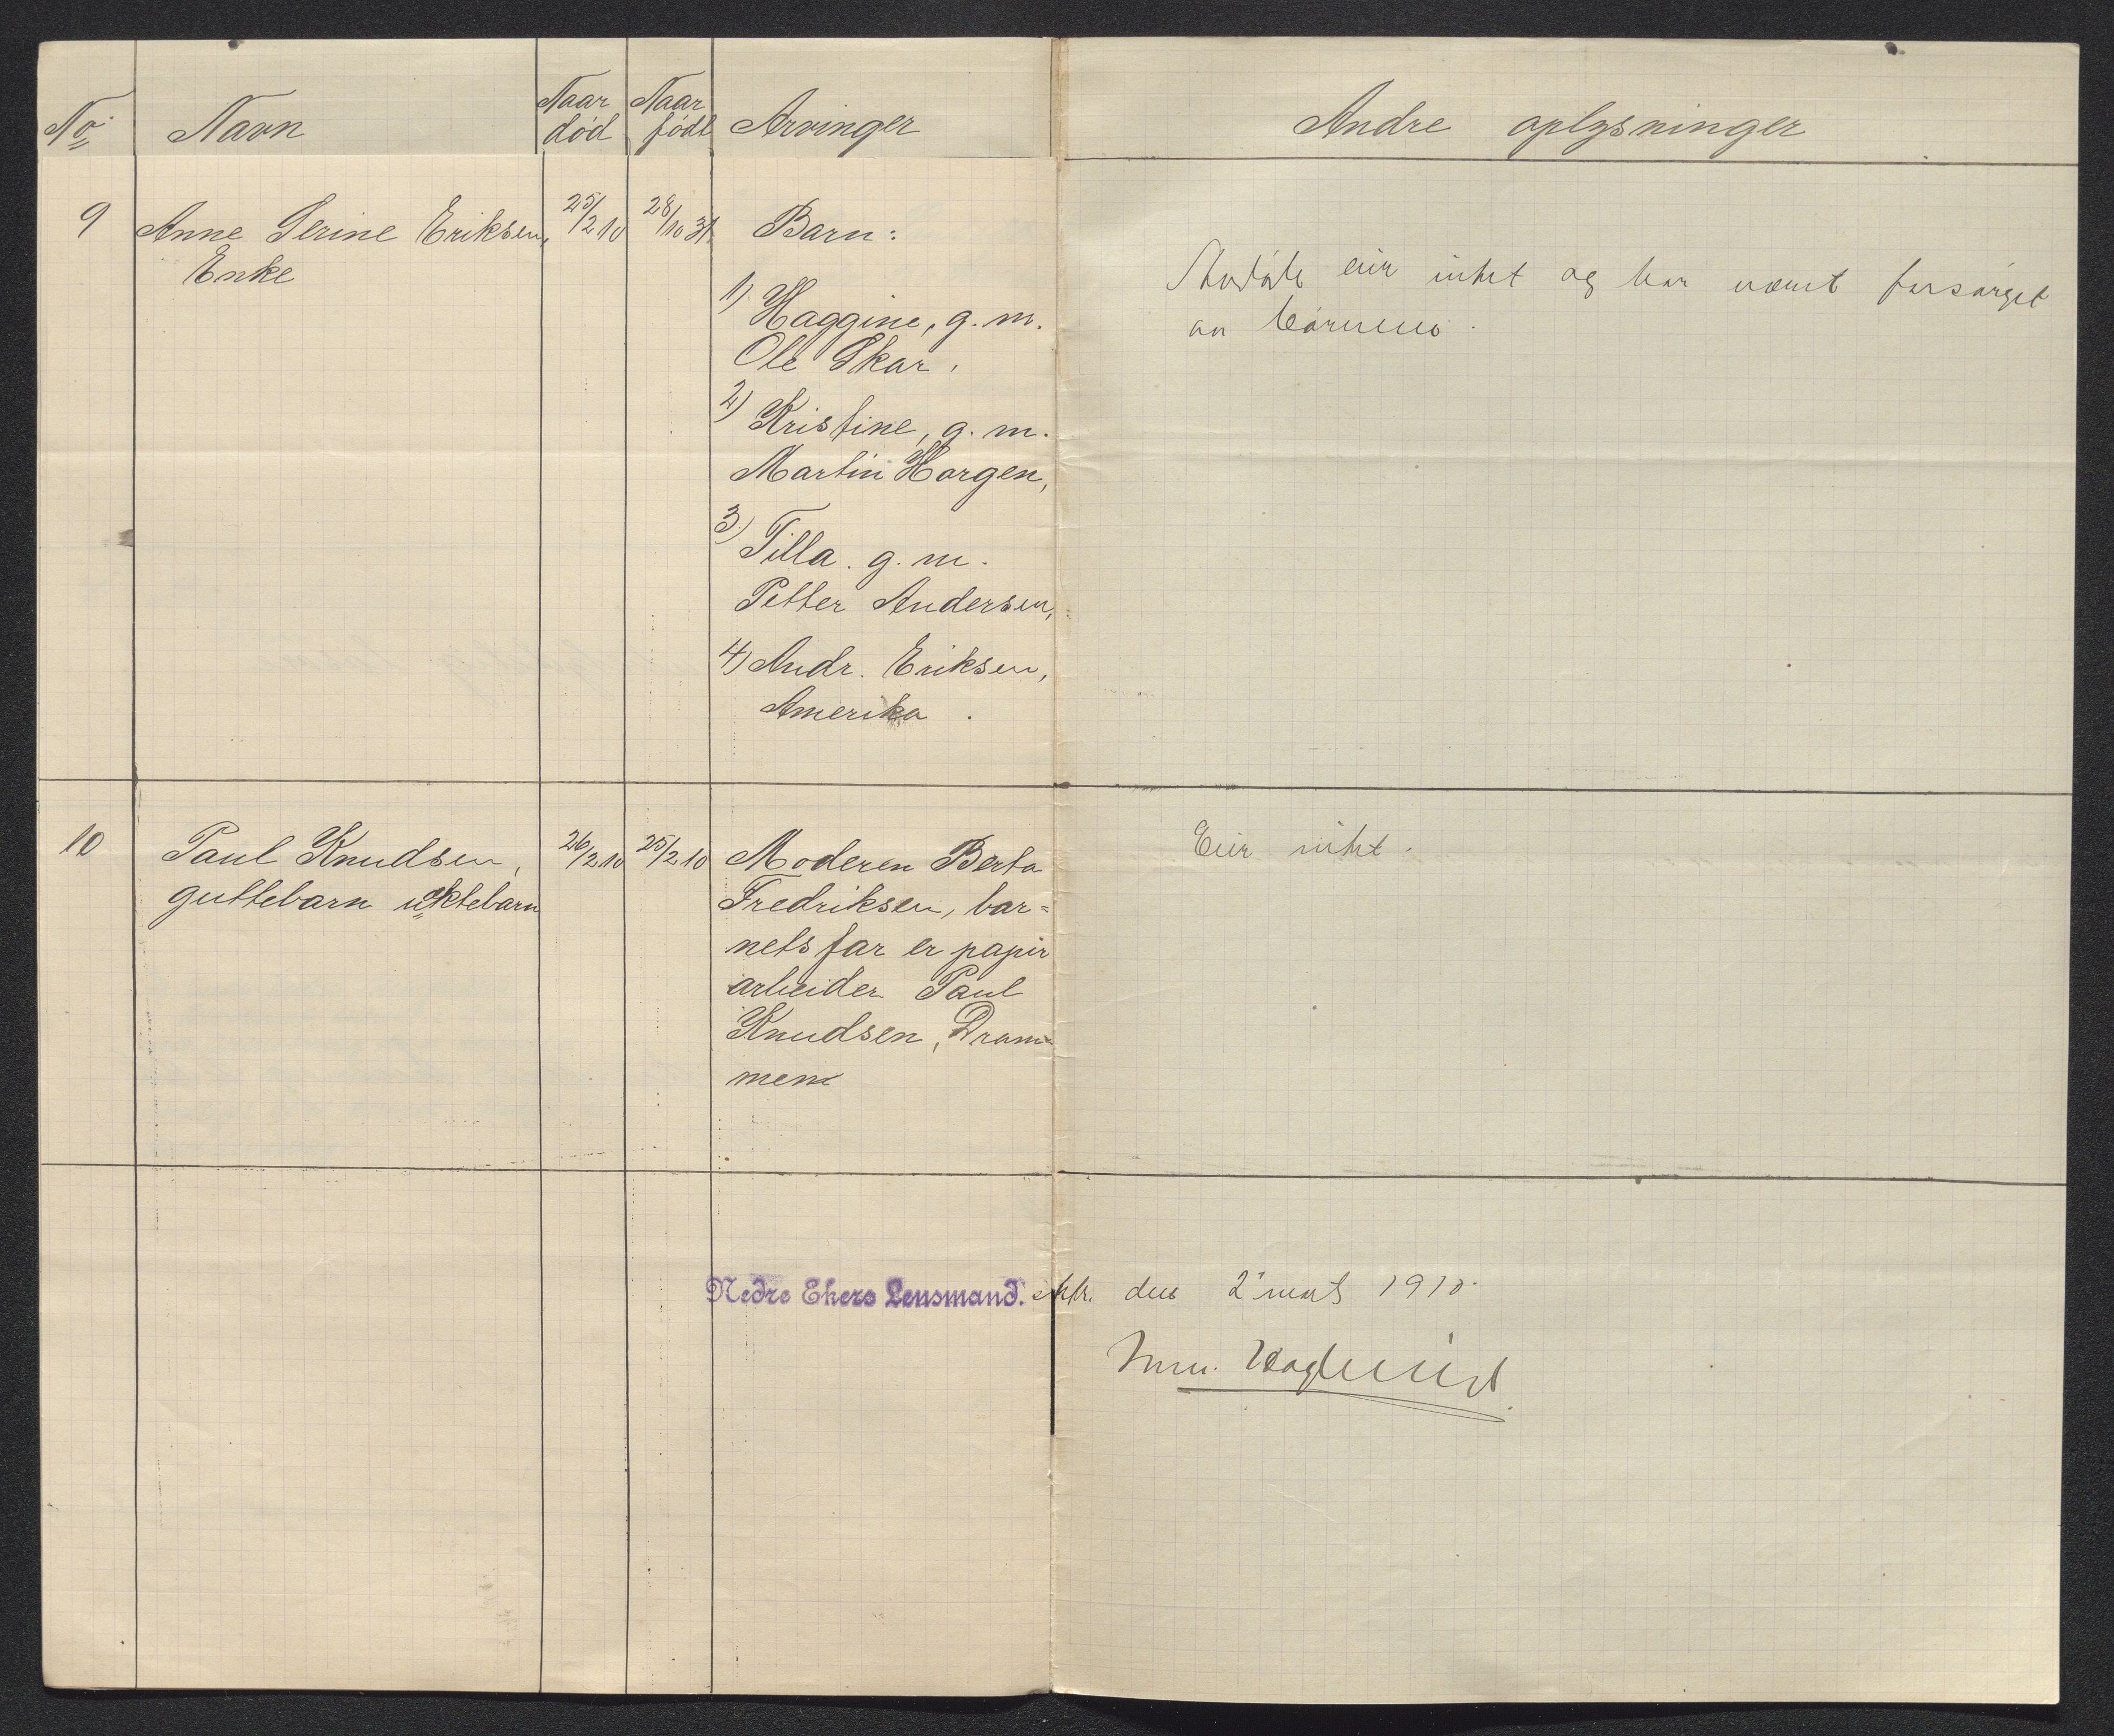 No. Navn Naar død Naar født Arvinger Andre oplysninger
9 Anne Serine Eriksen, 25/2 10 28/10 31. Barn:
Enke
1) Haggine, g. m.
Ole Skar,
2) Kristine, g. m.
Martin Horgen,
3) Tilla. g. m.
Petter Andersen,
4) Andr. Eriksen,
Amerika.
Avdøde eier intet og har været forsørget
av børnene.
10 Paul Knudsen, 26/2 10 25/2 10 Moderen Berta
guttebarn uektebarn
Fredriksen, bar=
nets far er papir
arbeider Paul
Knudsen, Dram=
men
Eier intet.
Nedre Ekers Lensmand. den 2 mars 1910.